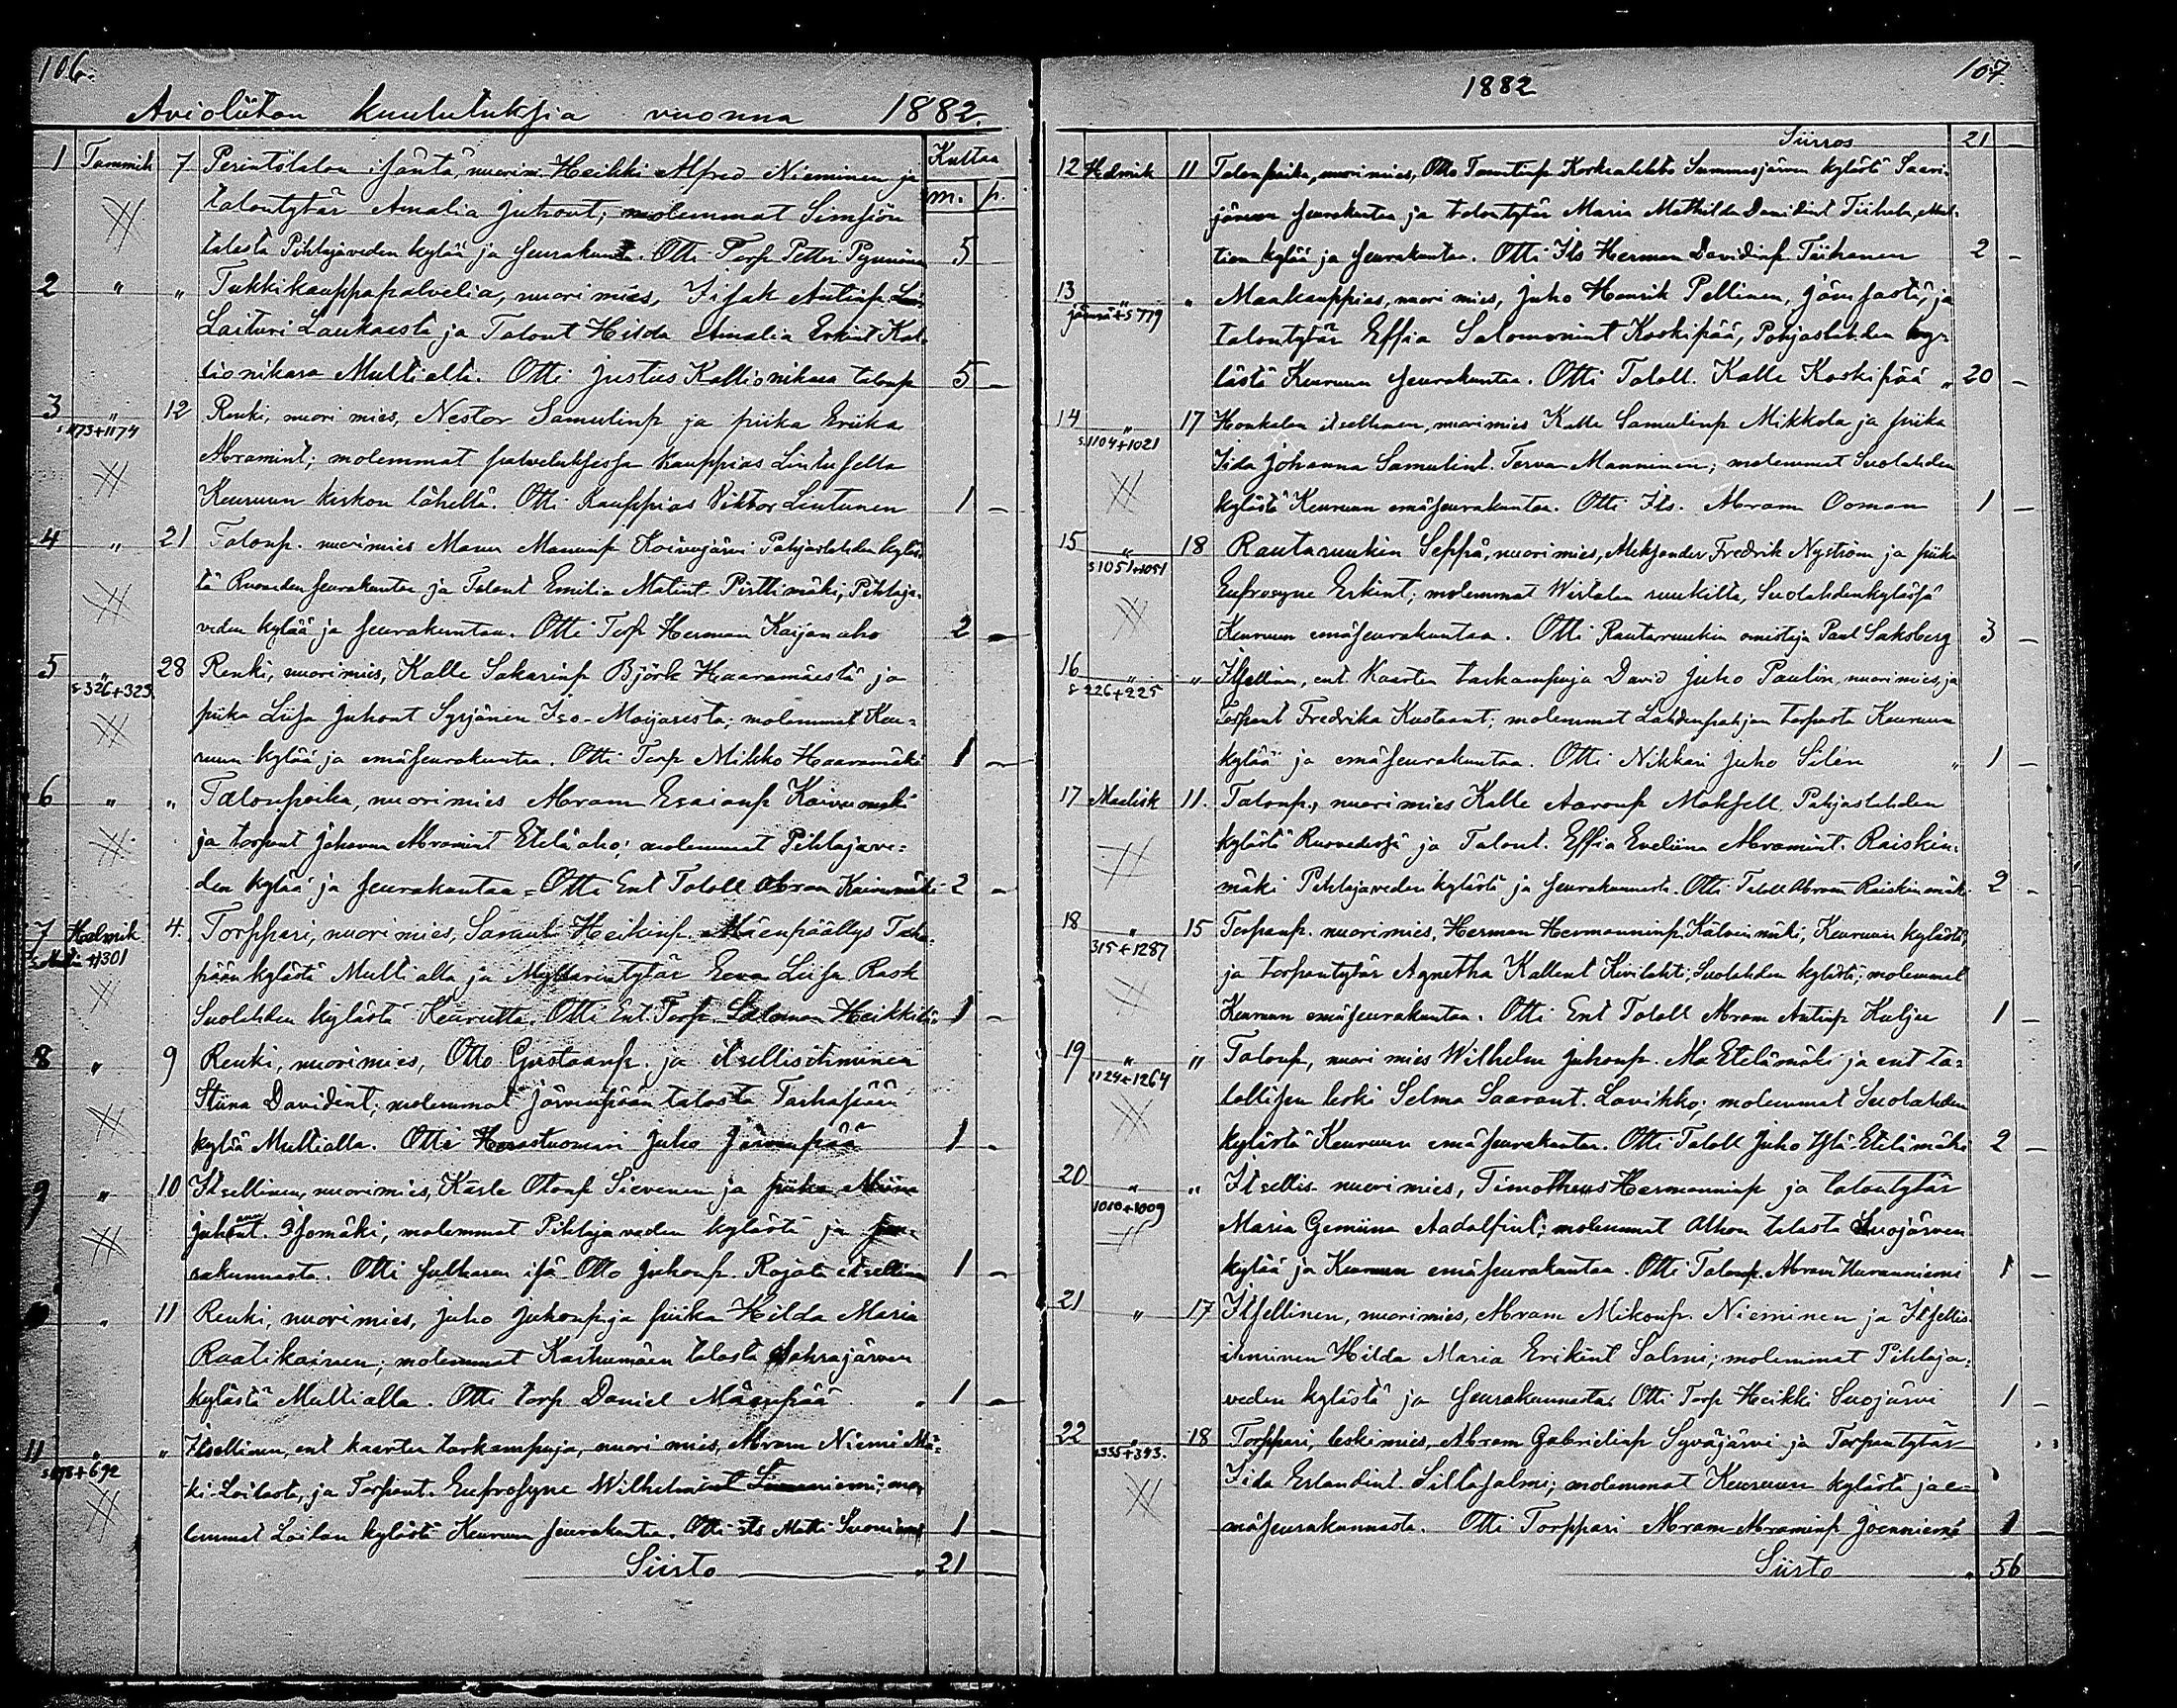 106.
Avioliiton kuulutuksia vuonna 1882.
Kuttaa
m. p.
1 Tammik 7 Perintötalon isäntä, nuorim. Heikki Alfred Nieminen ja
talontytär Amalia Juhont; molemmat Simsiön
talosta Pihlajaveden kylää ja seurakunta. Otti Torp Petter Pynnönen 5
2 " " Tukkikauppapalvelia, nuori mies, Iisak Antinp.
Laituri Laukaasta ja Talont Hilda Amalia Erkint Kal-
lionikara Multialta. Otti Justus Kallionikara talonp 5 -
3 " 12 Renki, nuori mies, Nestor Samulinp ja piika Eriika
s. 1173+1174
Abramint; molemmat palveluksessa Kauppias Lintusella
Keuruun kirkon läheltä. Otti Kauppias Viktor Lintunen 1 -
4 " 21 Talonp. nuorimies Manu Manunp Koivujärvi Pohjaslahden kyläs-
tä Ruoveden seurakuntaa ja Talont Emilia Matint Pirttimäki, Pihlaja-
veden kylää ja seurakuntaa. Otti Torp Herman Kaijanaho 2 -
5 " 28 Renki, nuorimies, Kalle Sakarinp Björk Haaramäestä ja
s 326+323.
piika Liisa Juhont Syrjänen Iso-Maijasesta; molemmat Keu-
ruun kylää ja emäseurakuntaa. Otti Torp Mikko Haaramäki 1 -
6 " " Talonpoika, nuorimies Abram Esaianp Koivumäki
ja torpant Johanna Abramint Eteläaho; molemmat Pihlajave-
den kylää ja seurakuntaa. Otti Ent Taloll Abram Koivumäki 2 -
7 Helmik 4. Torppari, nuori mies, Samuel Heikinp. Mäenpäällys Tarha-
+1301
pään kylästä Multialla ja Myllärintytär Eeva Liisa Rask
Suolahden kylästä Keuruulta. Otti Ent. Torp. Salomon Heikkilä 1 -
8 " 9 Renki, nuorimies, Otto Gustaanp. ja itsellisihminen
Stiina Davidint; molemmat Järvenpään talosta Tarhapään
kylää Multialla. Otti Herastuomari Juho Järvenpää 1 -
9 " 10 Itsellinen, nuorimies, Kaarle Otonp Sievänen ja piika Miina
Juhont. Isomäki, molemmat Pihlajaveden kylästä ja seu-
rakunnasta. Otti sulhasen isä Otto Juhonp. Rajala itsellinen 1 -
" 11 Renki, nuori mies, Juho Juhonp ja piika Hilda Maria
Raatikainen; molemmat Karhumäen talosta Sahrajärven
kylästä Multialla. Otti torp Daniel Mäenpää " 1 -
11 " " Itsellinen, ent kaartin tarkampuja, nuori mies, Abram Niemi Mä-
+692
ki-Loilasta, ja Torpant. Eufrosyne Wilhelmint mo-
lemmat Loilan kylästä Keuruun seurakuntaa. Otti its Matti Suoniemi 1 -
Siirto " 21
1882 107
Siirros 21 -
12 Helmik 11 Talonpoika, nuori mies, Otto Taavetinp Korkealehto Summasjärven kylästä Saari-
järven seurakuntaa ja talontytär Maria Mathilda Davidint Tiihala, Mul-
tian kylää ja seurakuntaa. Otti Its Herman Davidinp Tiihanen 2 -
13 " " Maakauppias, nuori mies, Juho Henrik Pellinen, Jämsästä, ja
Jämsä+s 779
talontytär Effia Salomonint Koskipää, Pohjaslahden ky-
lästä Keuruun seurakuntaa. Otti Taloll. Kalle Koskipää " 20 -
14 " 17 Honkalan itsellinen, nuorimies Kalle Samulinp Mikkola ja piika
s. 1104+1021
Iida Johanna Samulint. Terva-Manninen; molemmat Suolahden
kylästä Keuruun emäseurakuntaa. Otti Its. Abram Ooman 1 -
15 " 18 Rautaruukin Seppä, nuori mies, Aleksander Fredrik Nyström ja piika
s 1051+1051
Eufrosyne Erkint; molemmat Wirtalan ruukilta, Suolahdenkylässä
Keuruun emäseurakuntaa. Otti Rautaruukin omistaja Paul Saksberg 3 -
16 " " Itsellinen, ent Kaartin tarkampuja David Juho Paulin, nuori mies, ja
s 226+225
Torpant Fredrika Kustaant; molemmat Lahdenpohjan torpasta Keuruun
kylää ja emäseurakuntaa. Otti Nikkari Juho Silén " 1 -
17 Maalisk 11. Talonp., nuori mies Kalle Aaronp Moksell Pohjaslahden
kylästä Ruovedessä ja Talont. Effia Eveliina Abramint. Raiskin-
mäki Pihlajaveden kylästä ja seurakunnasta. Otti Taloll Abram Raiskinmäki 2 -
18 " 15 Torpanp. nuori mies, Herman Hermanninp. Kalvinmäki, Keuruun kylästä,
315+1287
ja torpantytär Agnetha Kallent Kivilahti, Suolahden kylästä; molemmat
Keuruun emäseurakuntaa. Otti Ent Taloll Abram Antinp Kuljee 1 -
19 " " Talonp, nuori mies Wilhelm Juhonp. Ala Etelämäki ja ent ta-
1124+1264
lollisen leski Selma Saarant. Lavikko; molemmat Suolahden
kylästä Keuruun emäseurakuntaa. Otti Taloll Juho Ylä-Etelämäki 2 -
20 " " Itsellis. nuori mies, Timotheus Hermanninp ja talontytär
1010+1009
Maria Gemiina Aadolfint; molemmat Alhon talosta Suojärven
kylää ja Keuruun emäseurakuntaa. Otti Talonp. Abram Huranniemi 1 -
21 " 17 Itsellinen, nuorimies, Abram Mikonp. Nieminen ja Itsellis-
ihminen Hilda Maria Erikint Salmi; molemmat Pihlaja-
veden kylästä ja seurakunnasta. Otti Torp Heikki Suojärvi 1 -
22 " 18 Torppari, leskimies, Abram Gabrielinp Syväjärvi ja Torpantytär
s335+393.
Iida Erlandint. Siltasalmi; molemmat Keuruun kylästä ja e-
mäseurakunnasta. Otti Torppari Abram Abraminp Joenniemi 1 -
Siirto " 56